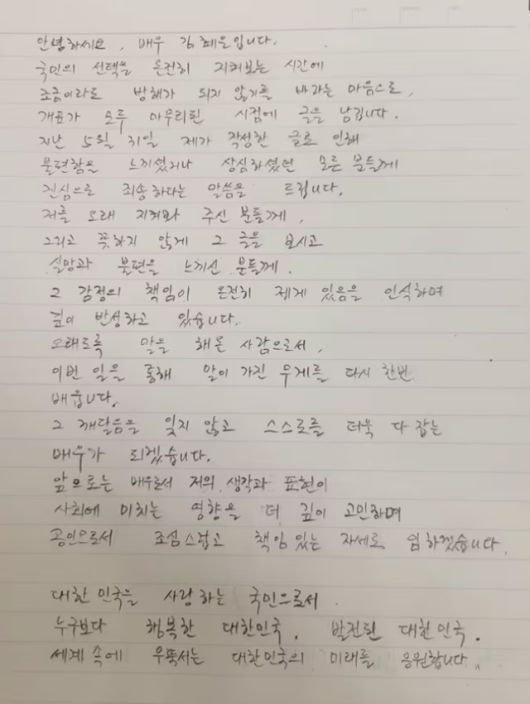 안녕하세요, 배우 김혜은입니다.
국민의 선택을 온전히 지켜보는 시간에
조금이라도 방해가 되지 않기를 바라는 마음으로,
개표가 모두 마무리된 시점에 글을 남깁니다.
지난 5월 31일 제가 작성한 글로 인해
불편함을 느끼셨거나 상심하셨던 모든 분들께
진심으로 죄송하다는 말씀을 드립니다.
저를 오래 지켜봐 주신 분들께,
그리고 뜻하지 않게 그 글을 보시고
실망과 불편을 느끼신 분들께.
그 감정의 책임이 온전히 제게 있음을 인식하며
깊이 반성하고 있습니다.
오래도록 말을 해온 사람으로서,
이번 일을 통해 말이 가진 무게를 다시 한번
배웁니다.
그 깨달음을 잊지 않고 스스로를 더욱 다 잡는
배우가 되겠습니다.
앞으로는 배우로서 저의 생각과 표현이
사회에 미치는 영향을 더 깊이 고민하며
공인으로서 조심스럽고 책임 있는 자세로 임하겠습니다.
대한민국을 사랑하는 국민으로서
누구보다 행복한 대한민국, 발전된 대한민국.
세계 속에 우뚝서는 대한민국의 미래를 응원합니다.